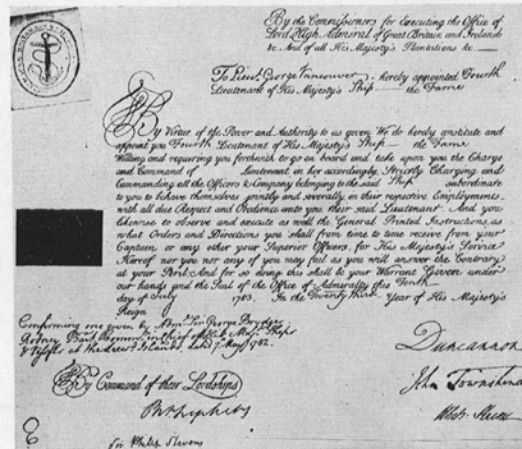 By the Commissioners for Executing the Office of
Lord High Admiral of Great Britain and Ireland
&c. And of all His Majesty's Plantations &c.
To Lieut. George Vancouver hereby appointed Fourth
Lieutenant of His Majesty's Ship the Fame
By Virtue of the Power and Authority to us given We do hereby constitute and
appoint you Fourth Lieutenant of His Majesty's Ship the Fame
Willing and requiring you forthwith to go on board and take upon you the Charge
and Command of Lieutenant in her accordingly. Strictly Charging and
Commanding all the Officers & Company belonging to the said Ship subordinate
to you to behave themselves jointly and severally in their respective Employments
with all due Respect and Obedience unto you their said Lieutenant And you
likewise to observe and execute as well the General Printed Instructions, as
what Orders and Directions you shall from time to time receive from your
Captain or any other your Superior Officers, for His Majesty's Service
Hereof nor you nor any of you may fail as you will answer the Contrary
at your Peril. And for so doing this shall be your Warrant Given under
our hands and the Seal of the Office of Admiralty this Tenth
day of July 1783. In the Twenty third Year of His Majesty's
Reign
Confirming one given by Adml. Sir George Brydges
Rodney Bart. Commr. in Chief of His Maj. Ships
& Vessels at the Leeward Islands, dated 7 May 1782.
Duncannon
By Command of their Lordships
John Townshend
Php Stephens
Sir Philip Stevens